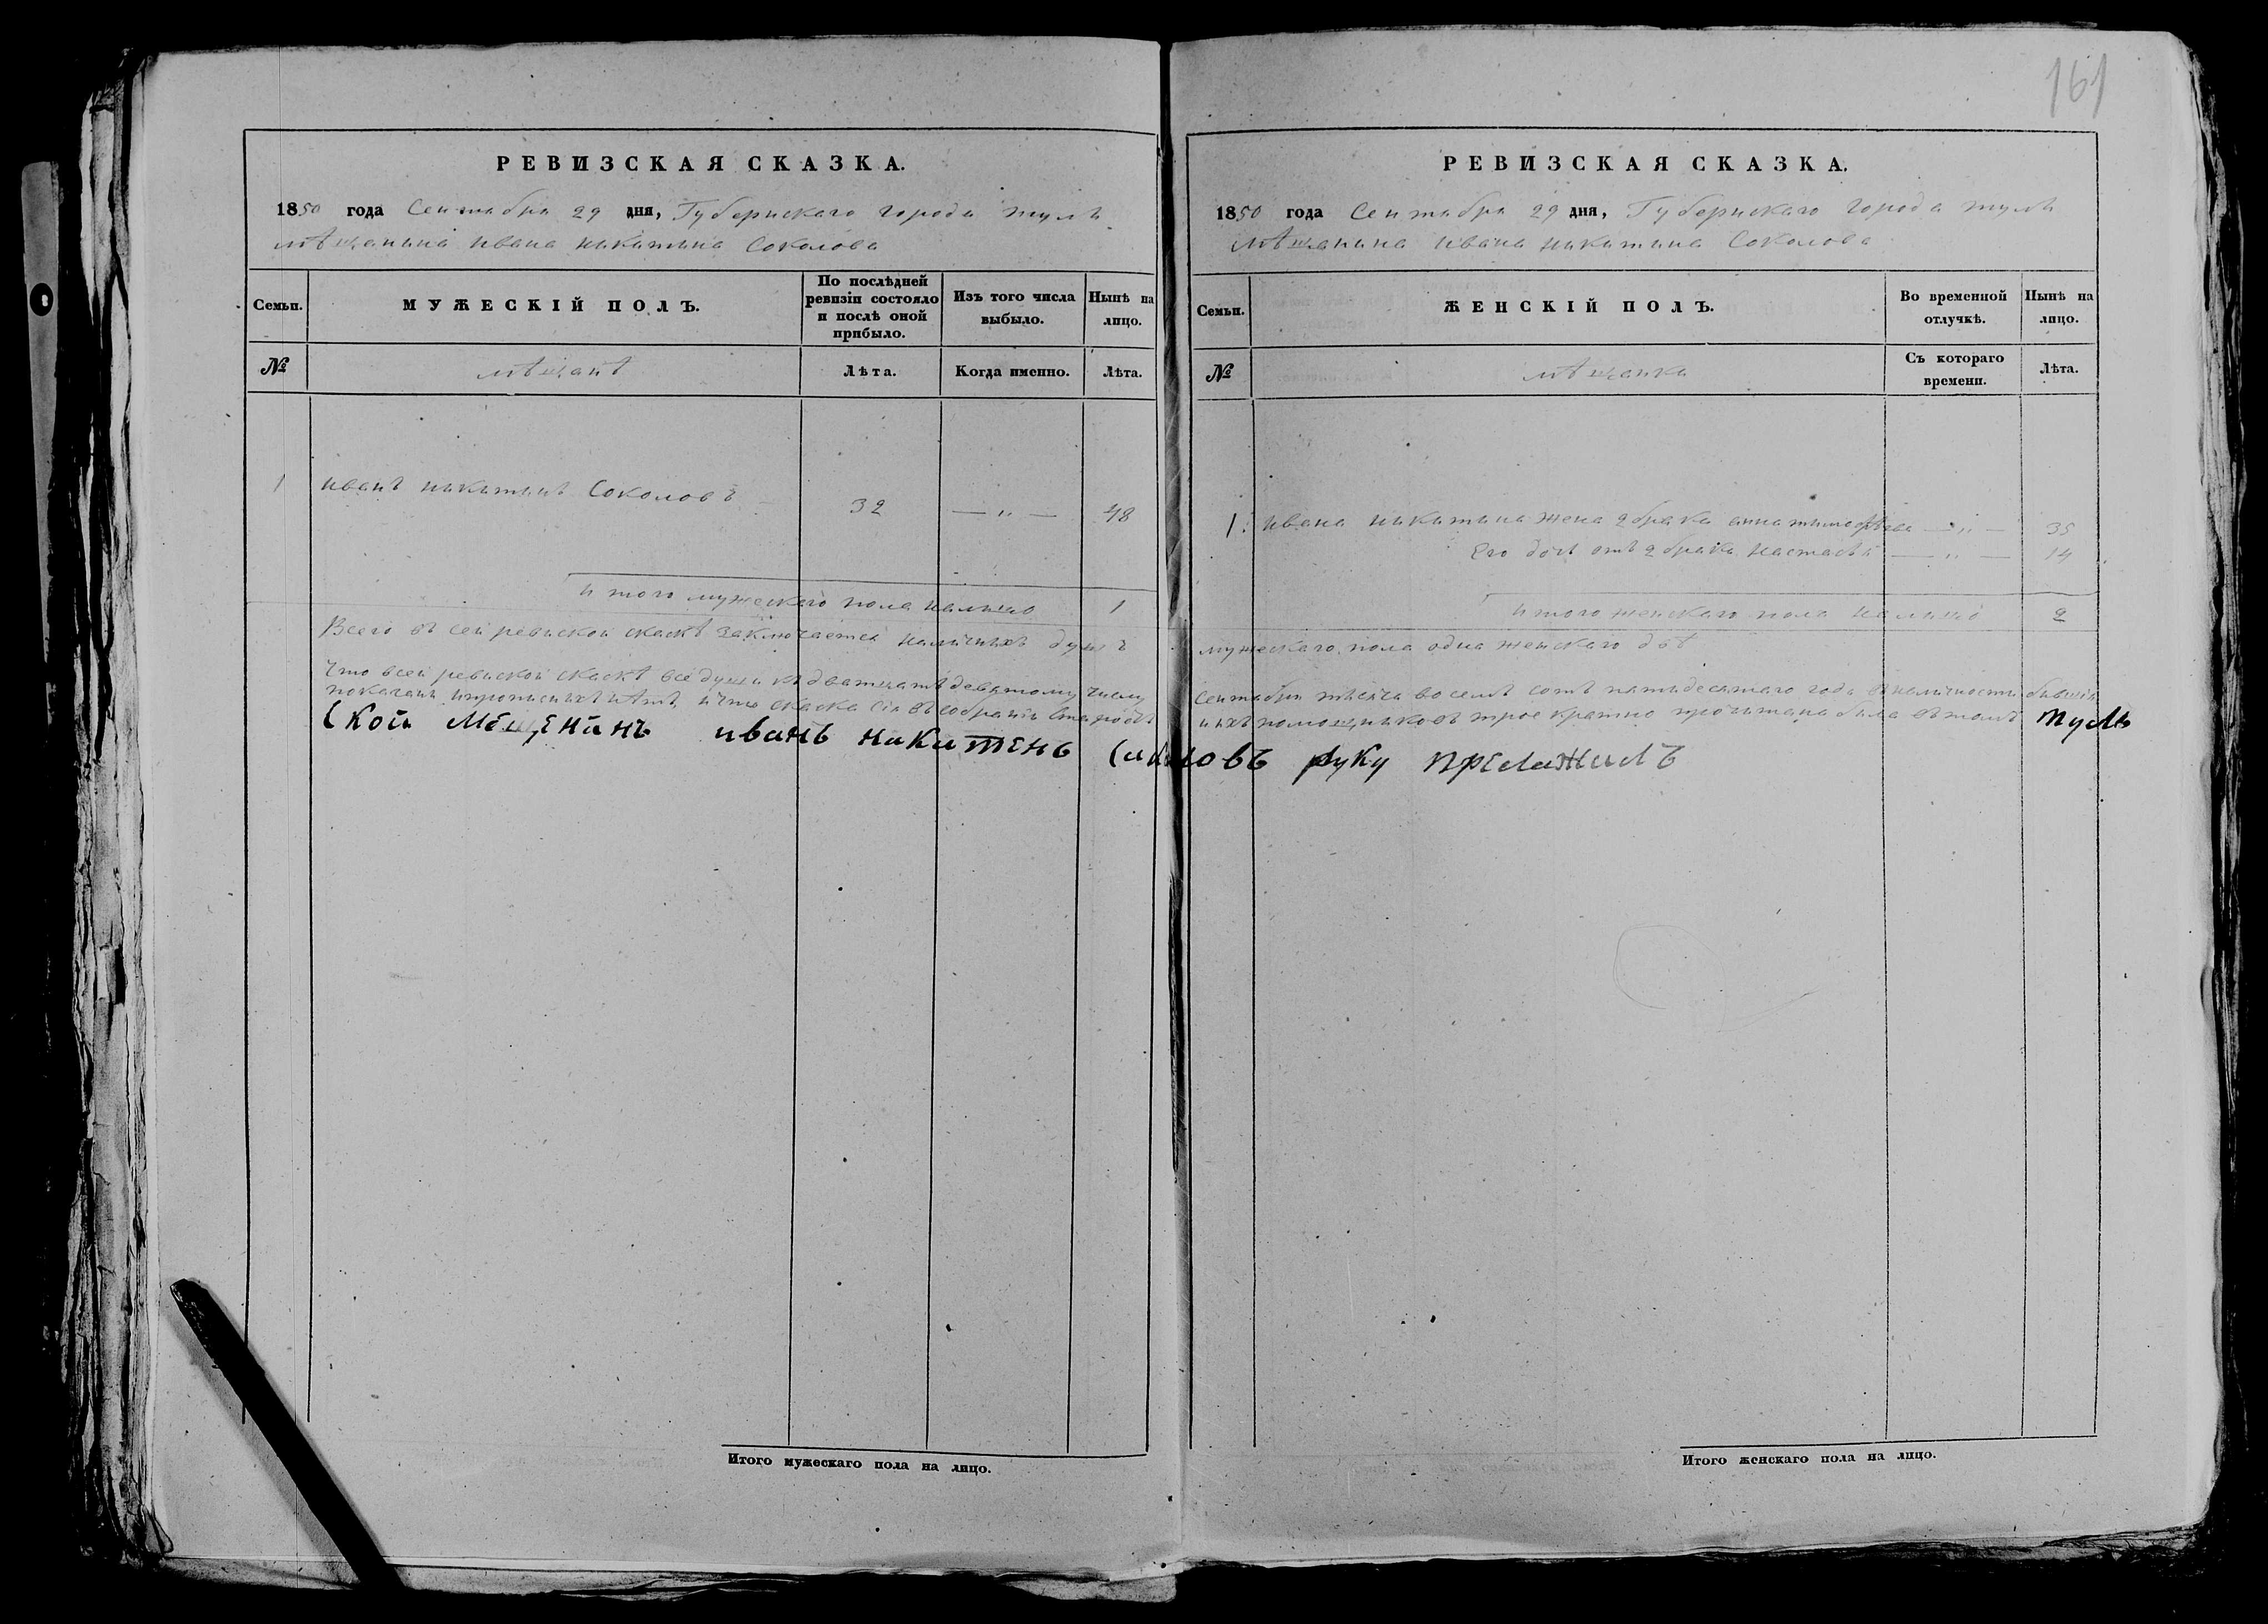 161
РЕВИЗСКАЯ СКАЗКА.
1850 года Сентября 29 дня, Губернскаго города тулы
мѣщанина ивана никитина Соколова
Семьи.
МУЖЕСКІЙ ПОЛЪ.
По послѣдней ревизіи состояло и послѣ оной прибыло.
Изъ того числа выбыло.
Нынѣ на лицо.
№
мѣщанѣ
Лѣта.
Когда именно.
Лѣта.
1 иванъ никитинъ Соколовъ 32 — " — 48
итого мужескаго пола налицо 1
Всего въ сей ревиской скаскѣ заключается наличныхъ душъ
Что всей ревиской скаскѣ все души къ дватцать девятому числу
показаны ипрописныхъ нѣтъ, ичто скаска сія въ собраніи старостъ
ской мещенинъ иванъ никитенъ Сиколовъ руку преложилъ
РЕВИЗСКАЯ СКАЗКА.
1850 года Сентября 29 дня, Губернскаго города тулы
мѣщанина ивана никитина Соколова
Семьи.
ЖЕНСКІЙ ПОЛЪ.
Во временной отлучкѣ.
Нынѣ на лицо.
№
мѣщанки
Съ котораго времени.
Лѣта.
1. ивана никитина жена 2 брака анна тимофѣева — " — 35
Его дочь отъ 2 брака настасья — " — 14
итого женскаго пола налицо 2
мужескаго пола одна женскаго двѣ
Сентября тысяча восемь сотъ пятидесятаго года въ наличности бывшія
ихъ помощниковъ троекратно прочитана была вътомъ туль
Итого мужескаго пола на лицо.
Итого женскаго пола на лицо.